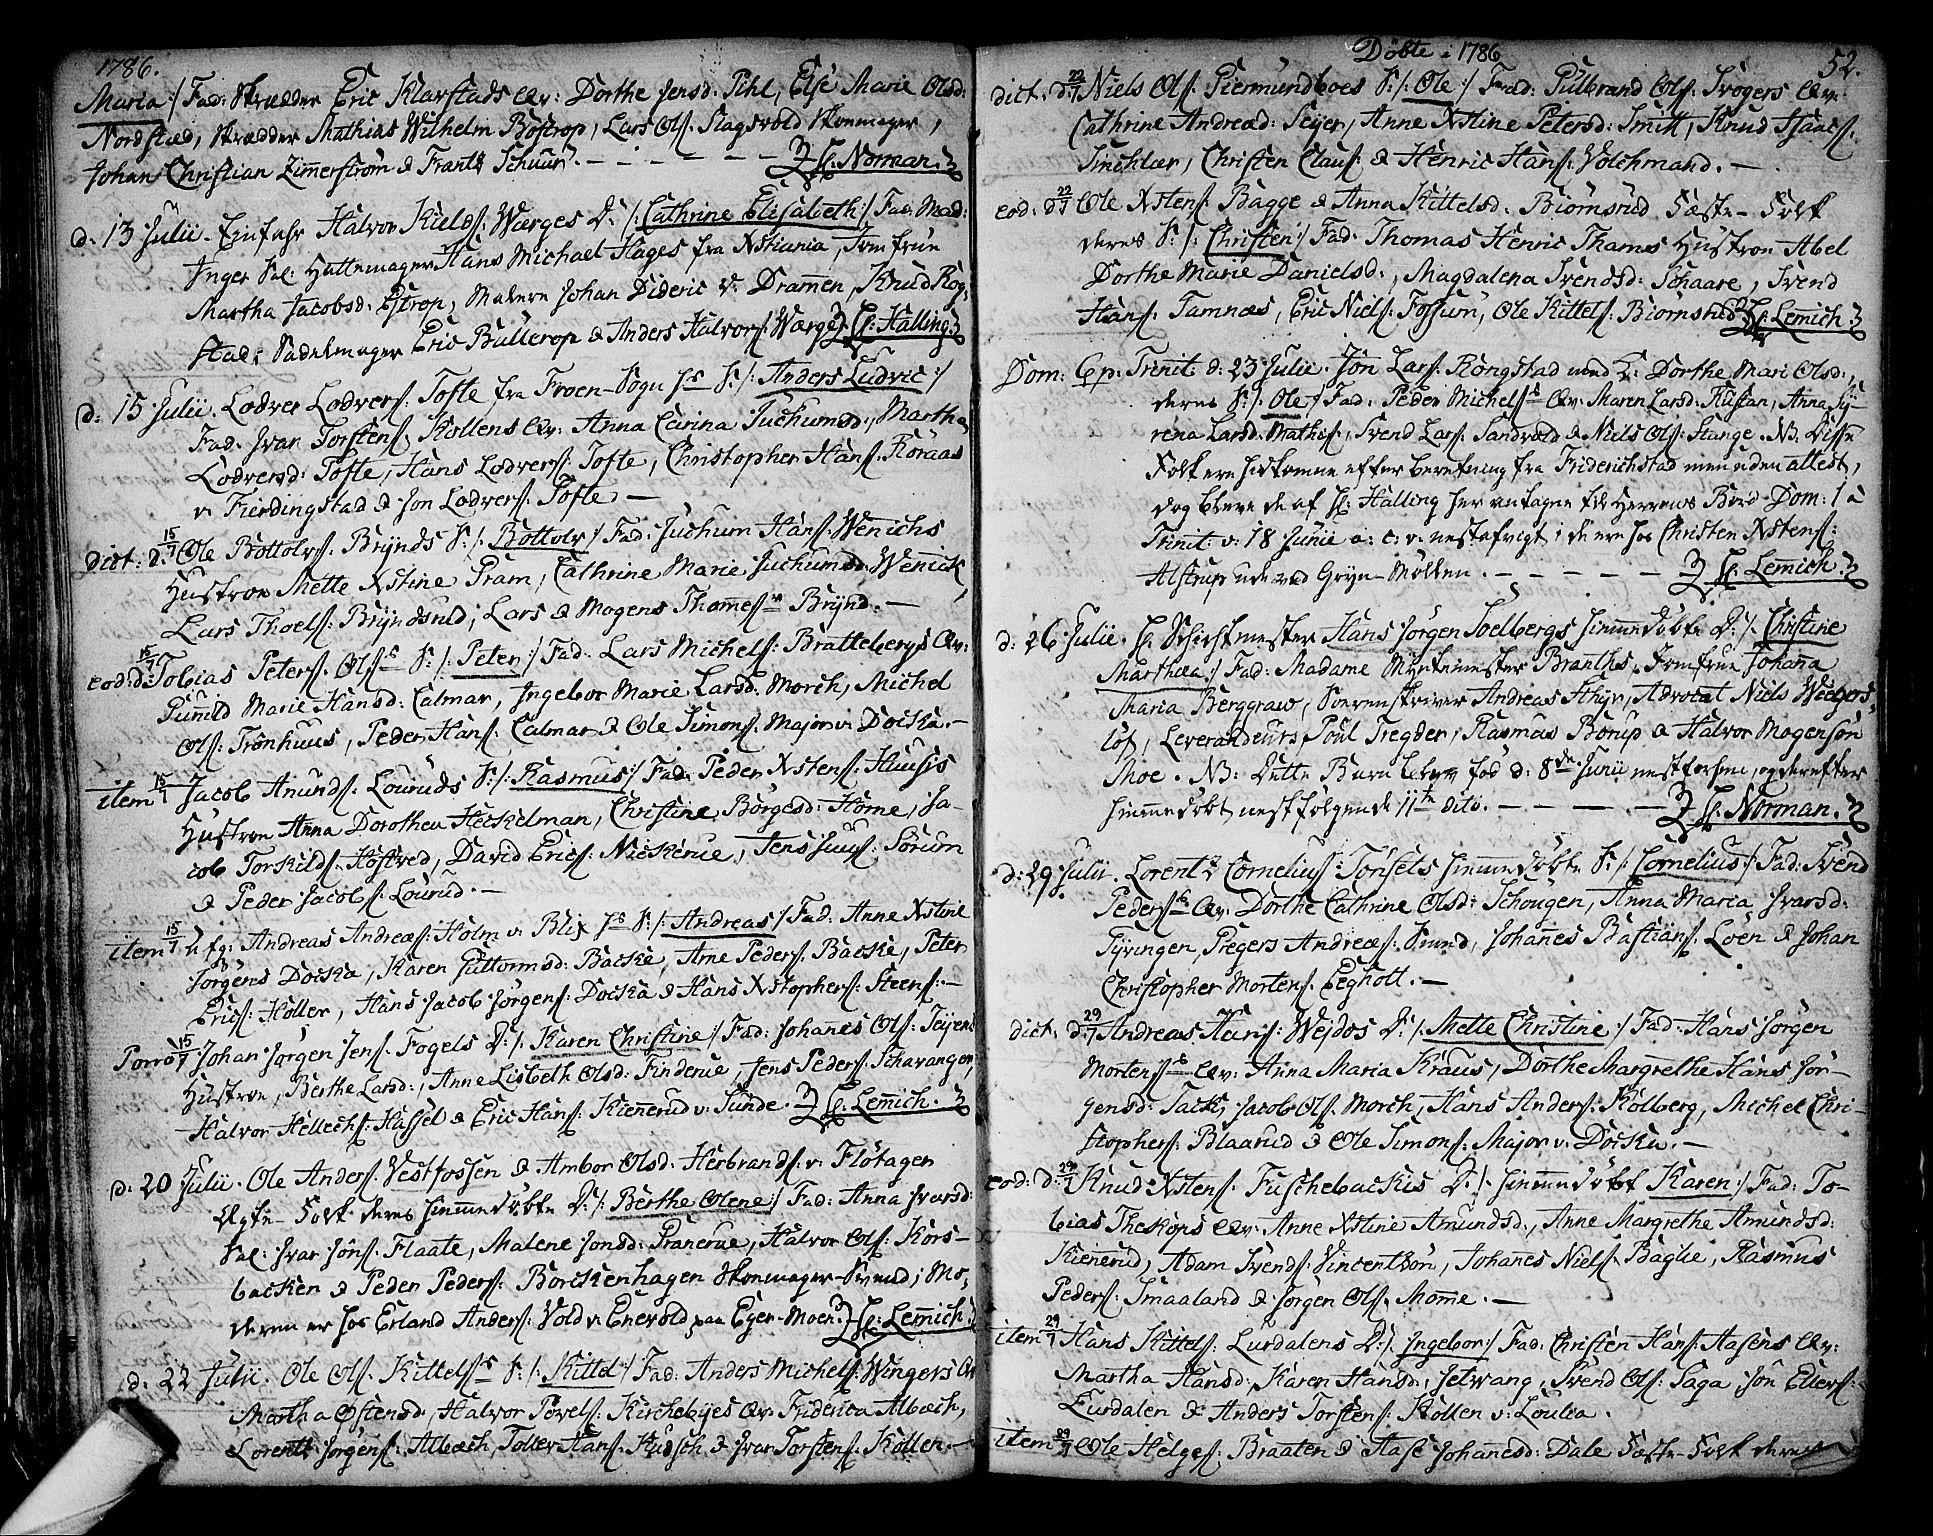 1786.
Maria :/ Fad: Skrædder Eric Klarstads Qv: Dorthe Jensd: Pihl, Else Marie Olsd:
Nordstad, Skrædder Mathias Wilhelm Bostrop, Lars Ols: Slagsvold Skomager,
Johan Christian Zimerstrøm & Frantz Schuur. — H: Norman.
d: 13 Julii. Halvor Kields: Warges D: /: Cathrine Elisabeth :/ Fad: Mad:
Inger Sal: Huttemager Hans Michael Hages fra Xstiania, Jomfrue
Martha Jacobsd: Ostrop, Johan Dideric v: Dramen, Knud Rog-
stad, Sadelmager Eric Bullerop & Anders Halvors: Warge. H: Halling
d: 15 Julii. Lodver Lodvers: Tofte fra Froen-Sogn S: /: Anders Ludvic :/
Fad: Ivar Torstens: Kollens Qv: Anna Carina Juchumsd:, Martha
Lodversd: Tofte, Hans Lodvers: Tofte, Christopher Hans: Roraas
v: Fierdingstad & Jon Lodvers: Tofte. —
dict: d: 15/7 Ole Bottolvs: Brynds S: /: Bottolv :/ Fad: Juchum Hans: Wenichs
Hustroe Mette Xstine Pram, Cathrine Marie Juchumsd: Wenick,
Lars Thoels: Bryndsrud, Lars & Mogens Thommes: Brynd. —
eod: d: 15/7 Tobias Peters: Ols: S: /: Peter :/ Fad: Lars Michels: Bratteberg Qv:
Gunild Marie Hansd: Calmar, Ingebor Marie Larsd: Morch, Michel
Ols: Tronhuus, Peder Hans: Calmar & Ole Simons: Major v: Docka. —
item 15/7 Jacob Anunds: Louruds S: /: Rasmus :/ Fad: Peder Xstens: Huusis
Hustroe Anna Dorothea Heckelman, Christine Borgesd: Home, Ja-
cob Torkilds: Hostved, David Erics: Nickerue, Jens Juuls: Sorum
& Peder Jacobs: Lourud. —
item 15/7 Andreas Andreæs: Holm v: Blix S: /: Andreas :/ Fad: Anne Xstine
Jorgens Docka, Karen Guttormsd: Backe, Arne Peders: Backe, Peter
Erics: Holler, Hans Jacob Jorgens: Docka & Hans Xstophers: Steens: —
Porro 15/7 Johan Jorgen Jens: Fogels D: /: Karen Christine :/ Fad: Johanes Ols: Teyens
Hustroe, Berthe Larsd:, Anne Lisbeth Olsd: Finderue, Jens Peders: Schavangen,
Halvor Hellechs: Hassel & Eric Hans: Kienerud v: Sunde. H: Lemich.
d: 20 Julii. Ole Anders: Vestfossen & Ambor Olsd: Herbrands: v: Flotagen
Ægte-Folk deres hiemmedøbte D: /: Berthe Olene :/ Fad: Anna Ivarsd:
Sal: Ivar Jons: Flaate, Malene Jonsd: Pranerue, Halvor Ols: Kors-
backen & Peder Peders: Borckenhagen Skomager-Svend; Mo-
deren er hos Erland Anders: Vold v: Enevold paa Eger-Moen. H: Lemich
d: 22 Julii. Ole Ols: Kittels: S: /: Kittel :/ Fad: Anders Michels: Wingers Qv:
Martha Ostensd:, Halvor Povels: Kirchebyes Qv: Friderica Albech,
Lorentz Jorgens: Albech, Tollev Hans: Hudsch & Ivar Torstens: Kollen. —
Døbte i 1786
52.
dict: d: 22/7 Niels Ols: Giermundboes S: /: Ole :/ Fad: Gulbrand Ols: Svogers Qv:
Cathrine Andreæd: Seyer, Anne Xstine Petersd: Smitt, Knud Isaacs:
Sinchlær, Christen Claus: & Henric Hans: Volchmand. —
eod: d: 22/7 Ole Xstens: Bagge & Anna Kittelsd: Biornsrud Fæste-Folk
deres S: /: Christen :/ Fad: Thomas Henric Thames Hustroe Abel
Dorthe Marie Danielsd:, Magdalena Svendsd: Schaare, Svend
Hans: Tamnæs, Eric Niels: Fossum, Ole Kittels: Biornsrud. H: Lemich
Dom: 6 p: Trinit: d: 23 Julii. Jon Lars: Rongstad med Q: Dorthe Mari Olsd:,
deres S: /: Ole :/ Fad: Peder Michels: Qv: Maren Larsd: Rustan, Anna Sy-
rena Larsd: Mathis:, Svend Lars: Sandvold & Niels Ols: Stange. NB: Disse
Folk ere hidkomne efter beretning fra Friderichstad men uden attest,
dog bleve de af H: Halling her antagne til Herrens Bord Dom: 1 a
Trinit: v: 18 Junii a: c: v: de ere hos Christen Xstens:
Alstrup ude ved Gryn-Møllen. — H: Lemich.
d: 26 Julii. H: Schichtmester Hans Jorgen Soelbergs hiemmedøbte D: /: Christine
Marthea :/ Fad: Madame Myntemester Branths, Jomfrue Johanna
Maria Berggraw, Soerenskriver Andreas Schyv, Advocat Niels Weigers-
lof, Leverandeurs Poul Tregder, Rasmus Borup & Halvor Mogenson
Moe. NB: Dette Barn blev fød d: 8de Junii nestforhen, og derefter
hiemmedøbt nestfølgende 11te dito. — H: Norman.
d: 29 Julii. Lorentz Cornelius: Tonsets hiemmedøbte S: /: Cornelius :/ Fad: Svend
Peders: Qv: Dorthe Cathrine Olsd: Schougen, Anna Maria Ivarsd:
Gyvingen, Gregers Andreæs: Smed, Johanes Bastians: Loen & Johan
Christopher Mortens: Egholt. —
dict: d: 29/7 Andreas Heins: Wejdos D: /: Mette Christine :/ Fad: Hans Jorgen
Mortens: Qv: Anna Maria Kraus, Dorthe Margrethe Hans Jor-
gensd: Sack, Jacob Ols: Morch, Hans Anders: Kolberg, Michel Chri-
stophers: Blaarud & Ole Simons: Major v: Docka. —
eod: d: 29/7 Knud Xstens: Fuschebackis D: /: hiemmedøbt Karen :/ Fad: To-
bias Theskops Qv: Anne Xstine Amundsd:, Anne Margrethe Amundsd:
Kienerud, Adam Svends: Vincentson, Johanes Niels: Baglie, Rasmus
Peders: Smaaland & Jorgen Ols: Momme. —
item 29/7 Hans Kittels: Lurdalens D: /: Ingebor :/ Fad: Christen Hans: Aasens Qv:
Martha Hansd:, Karen Hansd: Jelwang, Svend Ols: Saga, Jon Ellers:
Lurdalen & Anders Torstens: Kollen v: Loulia.
item 29/7 Ole Helges: Braaten & Aase Johannesd: Dale Fæste-Folk deres